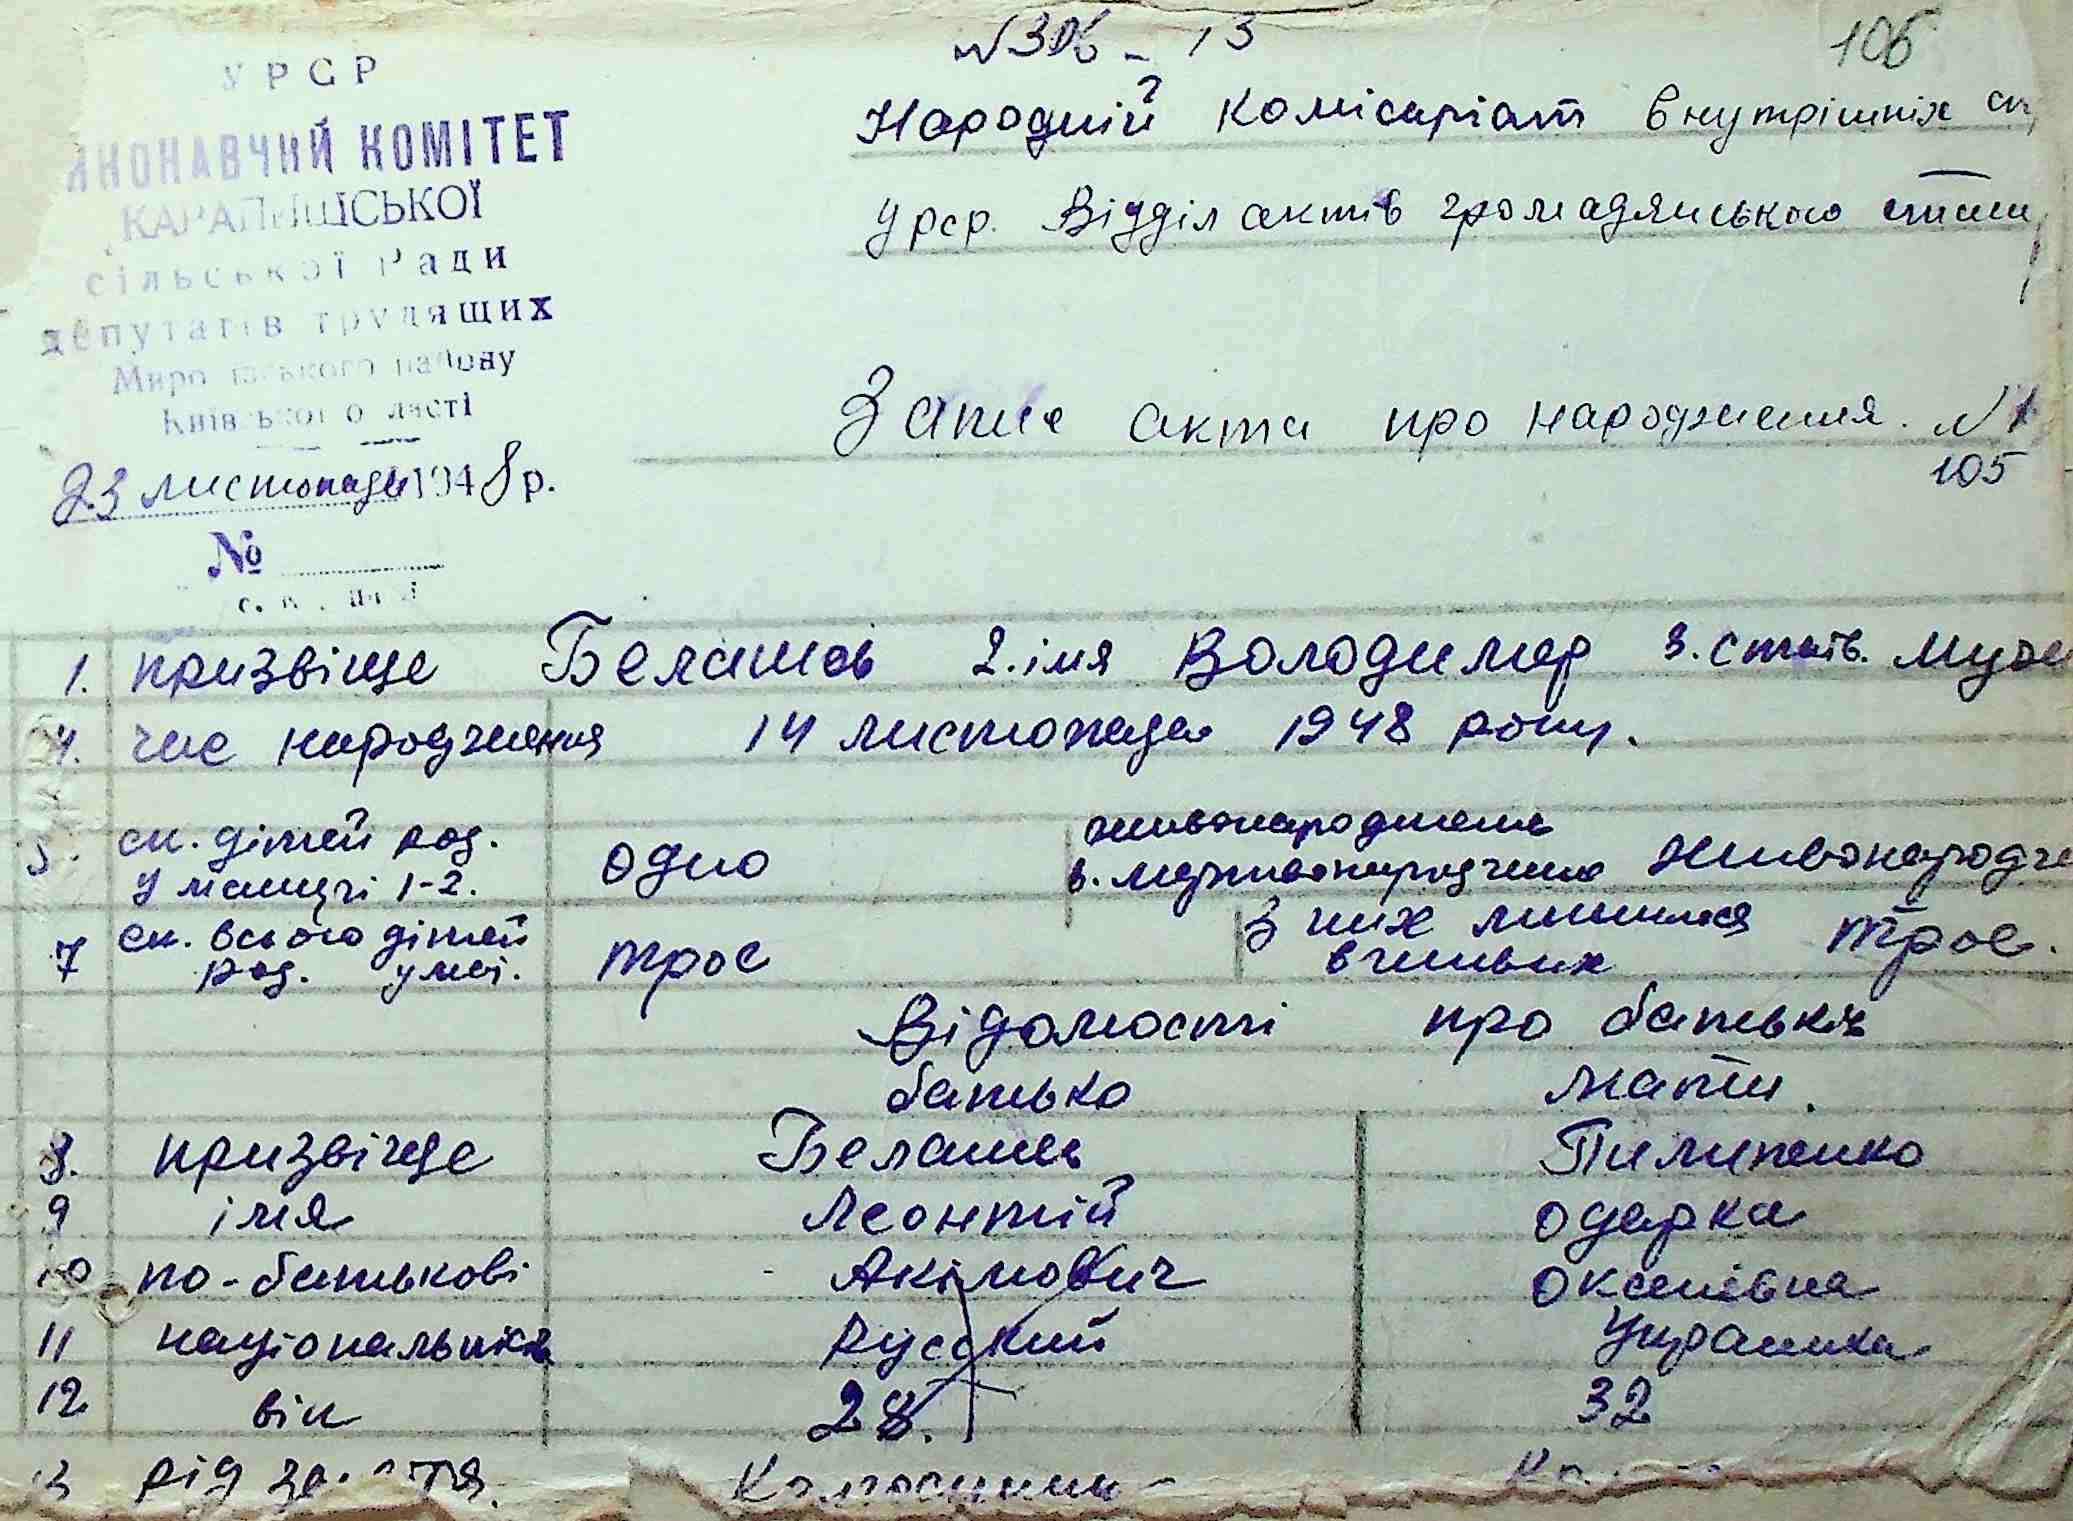 № 3ов - 13
106
УРСР
ИКОНАВЧИЙ КОМІТЕТ
КАРАПИШСЬКОЇ
сільської Ради
депутатів трудящих
Миронівського району
Київської області
23 листопада 1948 р.
№
Народній комісаріат внутрішніх сп
УРСР. Відділ актів громадянського стану
Запис акта про народження. №
105
1. призвіще Белашов 2. імя Володимер 3. стать. муж
4. час народження 14 листопада 1948 року.
5. ск. дітей род. у матері 1-2. одно живонароджена 6. мертвонароджена живонародже
7 ск. всього дітей род. у мат. троє З них лишилося в живих троє.
Відомості про батьків
батько мати.
8. призвіще Белашов Пилипенко
9 імя Леонтій Одарка
10 по-батькові Акімович
11 національність Русский Украинка
12 вік 28. 32
13 рід заняття. Колгоспник